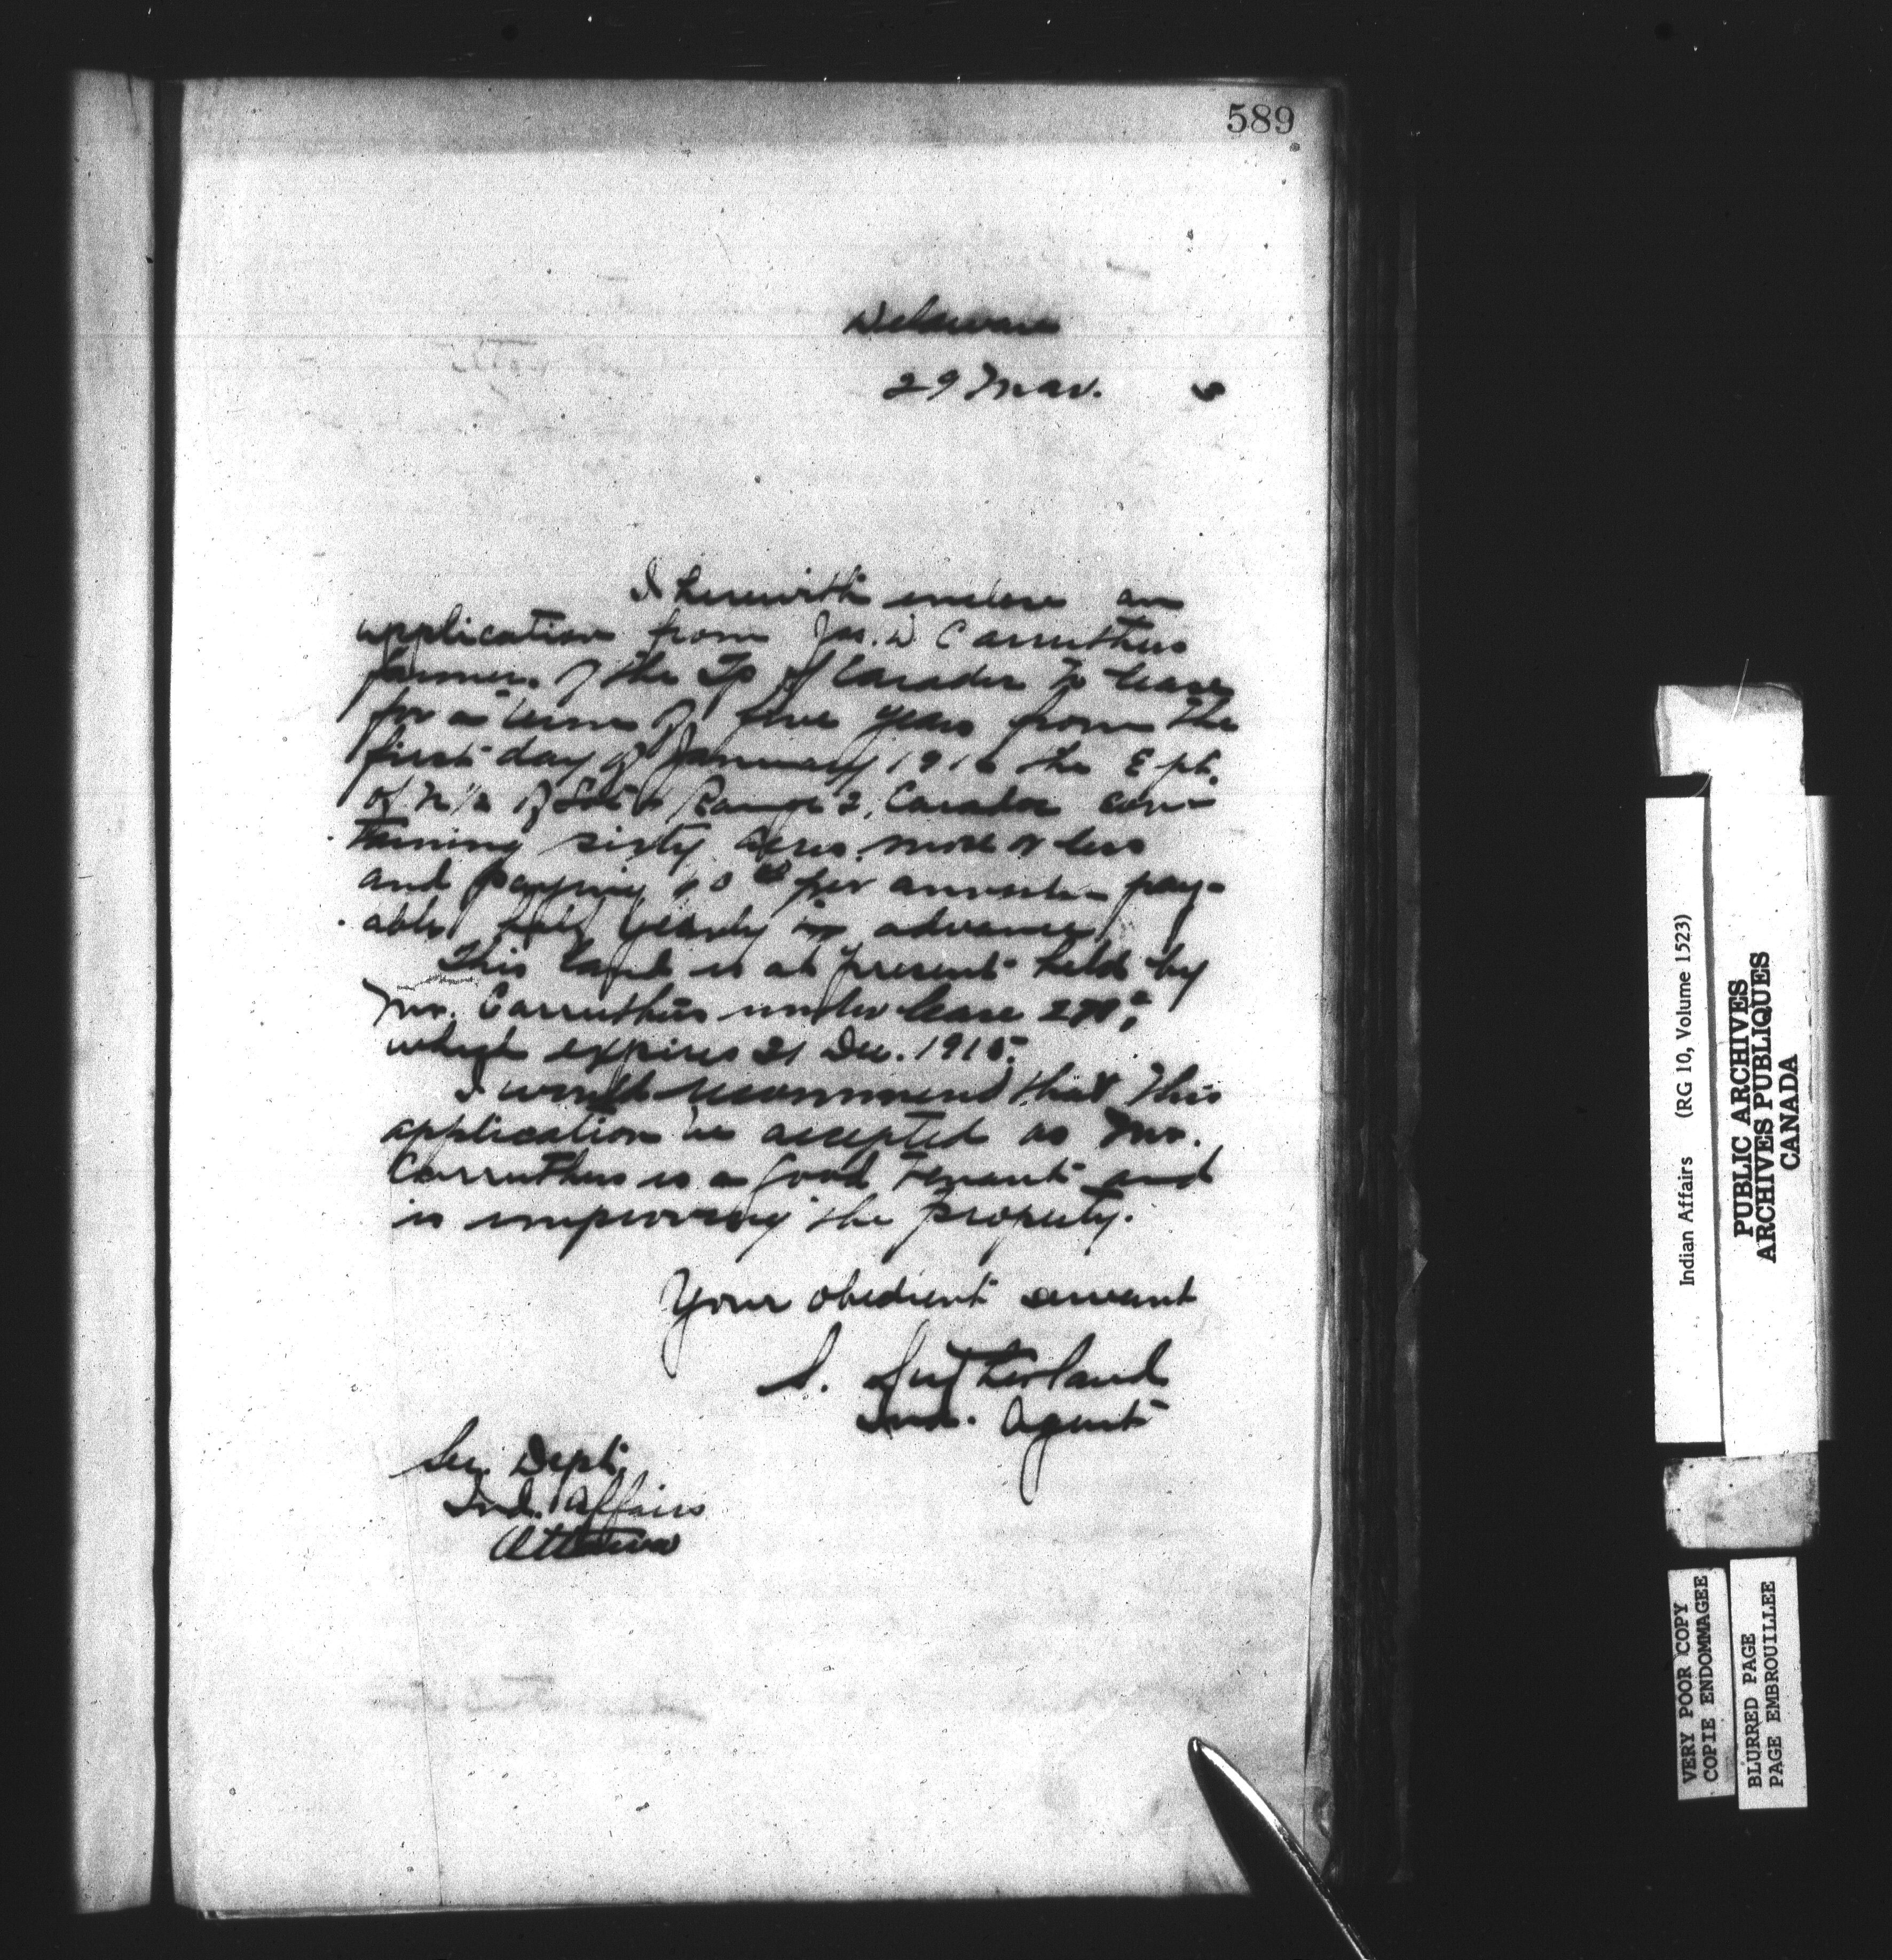 589
Delaware
29 Mar. 5
I herewith enclose an
application from Jas. D Carruthers
farmer. of the Tp of Caradoc to lease
for a term of five years from the
first day of January 1916 the E pt.
of N ½ of Lot Range 2, Caradoc con-
taining sixty acres more or less
and paying per annum pay-
able half yearly in advance
This land is at present held by
Mr. Carruthers under lease
which expires 31 Dec. 1915.
I would recommend that this
application be accepted as Mr.
Carruthers is a good tenant and
is improving the property.
Your obedient servant
S. Sutherland
Ind. Agent
Sec. Dept.
Ind. Affairs
Ottawa
Indian Affairs (RG 10, Volume 1523)
PUBLIC ARCHIVES
ARCHIVES PUBLIQUES
CANADA
VERY POOR COPY
COPIE ENDOMMAGEE
BLURRED PAGE
PAGE EMBROUILLEE